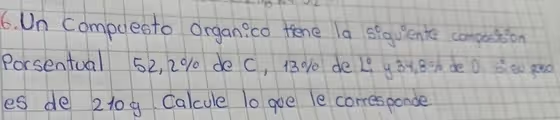 6. Un compuesto organico tiene la siguiente composición
Porsentual 52,2% de C, 13% de Li y 34,8% de O si su peso
es de 210g Calcule lo que le corresponde